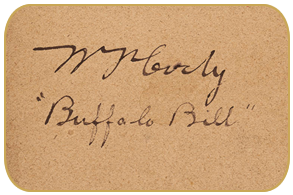 W F Cody
"Buffalo Bill"